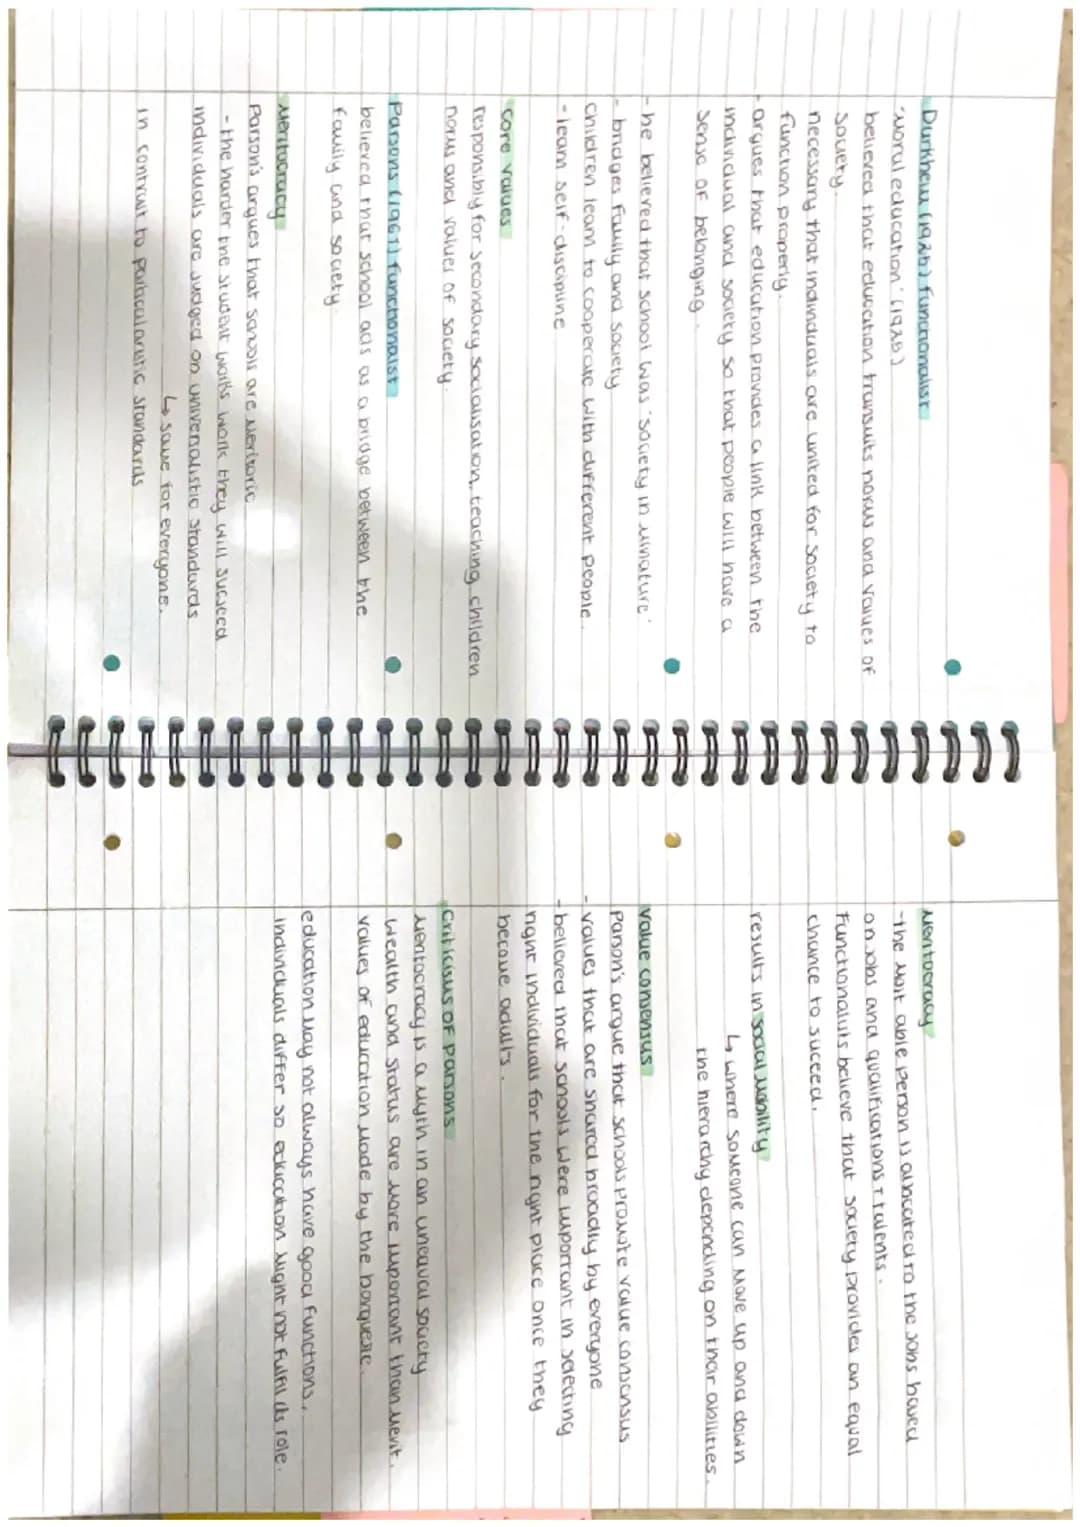 Durkheim (1925) functionalist
'moral education' (1925)
believed that education transmits norms and values of
society.
necessary that individuals are united for society to
function properly.
- argues that education provides a link between the
individual and society so that people will have a
sense of belonging.
- he believed that school was 'society in minature.'
- bridges family and society
children learn to cooperate with different people.
- learn self-discipline
core values
responsibly for secondary socialisation, teaching children
norms and values of society.
Parsons (1961) functionalist
believed that school acts as a bridge between the
family and society.
Meritocracy
Parson's argues that schools are meritoric
- the harder the student works work they will succeed
individuals are judged on universalistic standards
↳ same for everyone.
in contrast to particularistic standards
Meritocracy
- the most able person is allocated to the jobs based
on jobs and qualifications + talents.
Functionalists believe that society provides an equal
chance to succeed.
results in social mobility
↳ where someone can move up and down
the hierarchy depending on their abilities.
value consensus
Parson's argue that schools promote value consensus
- values that are shared broadly by everyone
- believed that schools were important in selecting
right individuals for the right place once they
become adults.
Criticisms of parsons
Meritocracy is a myth in an unequal society
wealth and status are more important than merit.
values of education made by the borguesie.
education may not always have good functions.
individuals differ so education might not fulfil its role.